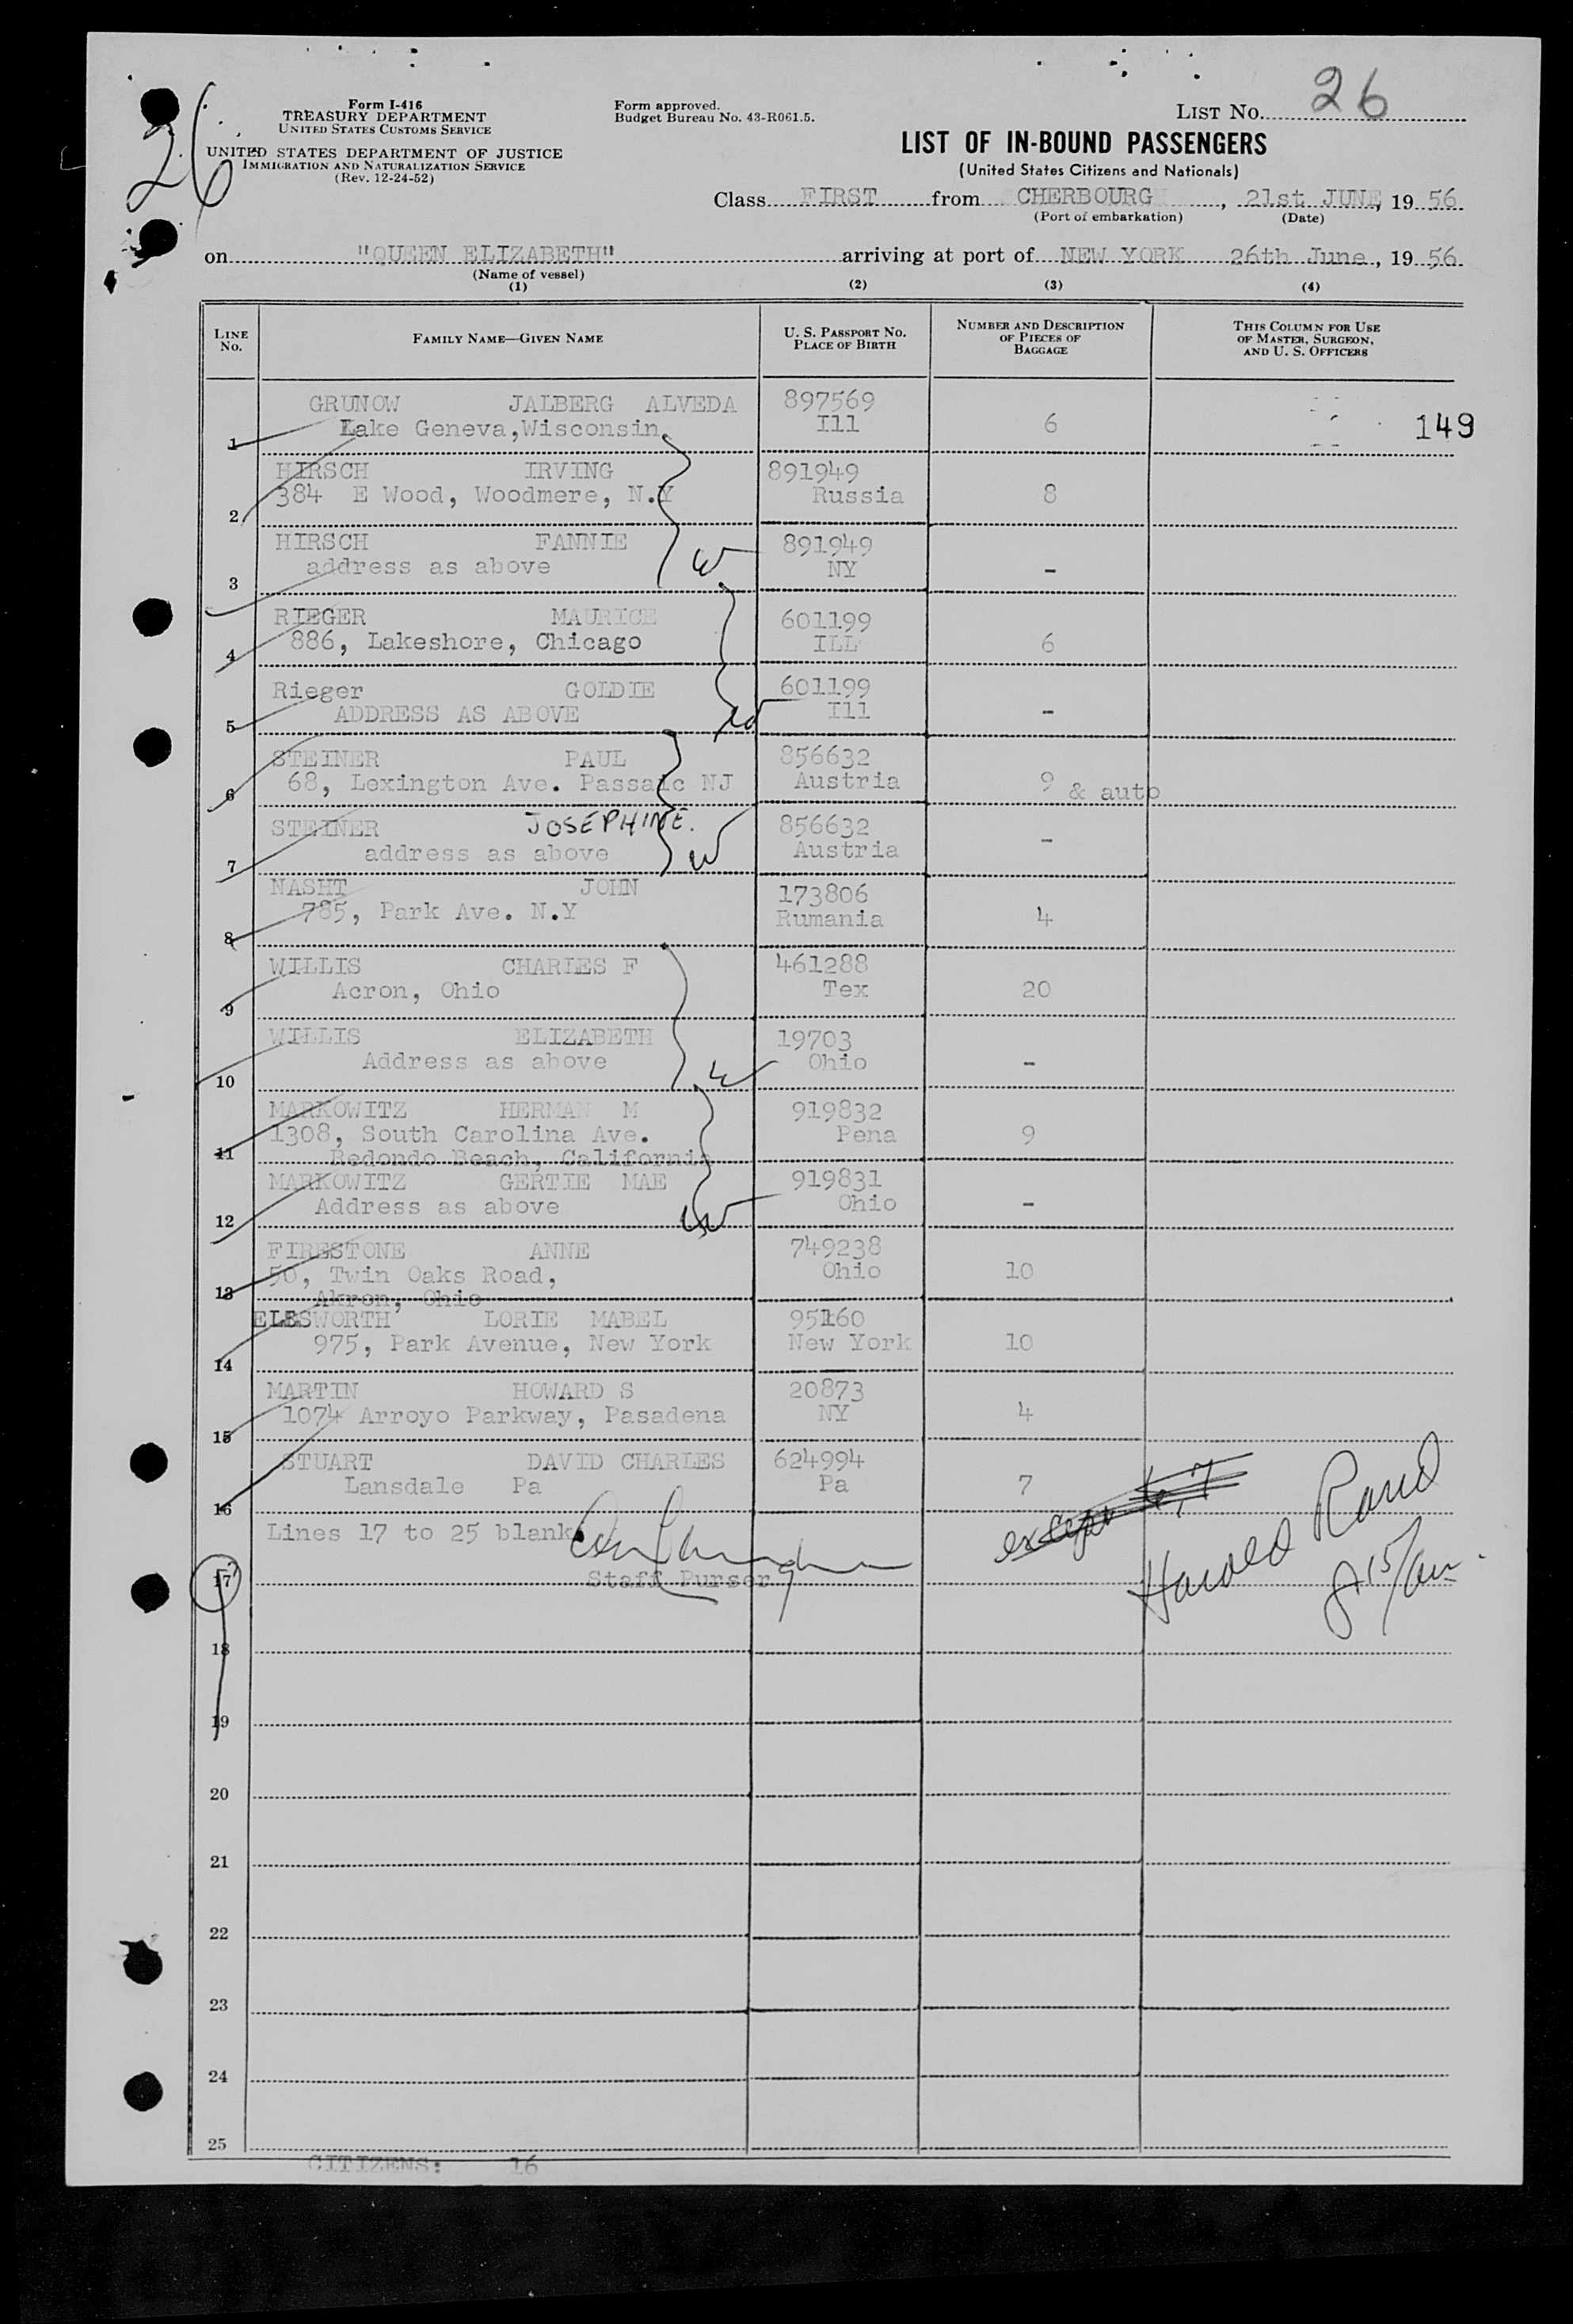 26
Form I-416
TREASURY DEPARTMENT
UNITED STATES CUSTOMS SERVICE
UNITED STATES DEPARTMENT OF JUSTICE
IMMIGRATION AND NATURALIZATION SERVICE
(Rev. 12-24-52)
Form approved.
Budget Bureau No. 43-R061.5.
LIST No. 26
LIST OF IN-BOUND PASSENGERS
(United States Citizens and Nationals)
Class FIRST from CHERBOURG, 21st JUNE, 19 56
(Port of embarkation) (Date)
on "QUEEN ELIZABETH" arriving at port of NEW YORK 26th June, 19 56
(Name of vessel)
(1) (2) (3) (4)
LINE No. FAMILY NAME—GIVEN NAME U. S. PASSPORT NO. PLACE OF BIRTH NUMBER AND DESCRIPTION OF PIECES OF BAGGAGE THIS COLUMN FOR USE OF MASTER, SURGEON, AND U. S. OFFICERS
GRUNOW JALBERG ALVEDA 897569
1 Lake Geneva,Wisconsin. Ill 6 149
HIRSCH IRVING 891949
2 384 E Wood, Woodmere, N.Y Russia 8
HIRSCH FANNIE 891949
3 address as above NY -
RIEGER MAURICE 601199
4 886, Lakeshore, Chicago ILL 6
Rieger GOLDIE 601199
5 ADDRESS AS ABOVE Ill -
STEINER PAUL 856632
6 68, Lexington Ave. Passaic NJ Austria 9 & auto
STEINER JOSEPHINE. 856632
7 address as above Austria -
NASHT JOHN 173806
8 785, Park Ave. N.Y Rumania 4
WILLIS CHARLES F 461288
9 Acron, Ohio Tex 20
WILLIS ELIZABETH 19703
10 Address as above Ohio -
MARKOWITZ HERMAN M 919832
11 1308, South Carolina Ave. Pena 9
Redondo Beach, California
MARKOWITZ GERTIE MAE 919831
12 Address as above Ohio -
FIRESTONE ANNE 749238
13 50, Twin Oaks Road, Ohio 10
Akron, Ohio
ELLSWORTH LORIE MABEL
14 975, Park Avenue, New York New York 10
MARTIN HOWARD S 20873
15 1074 Arroyo Parkway, Pasadena NY 4
STUART DAVID CHARLES 624994
16 Lansdale Pa Pa 7
Lines 17 to 25 blank
except 6,7
Harold Rand
8.15/am.
Staff Purser
17
18
19
20
21
22
23
24
25
CITIZENS: 16